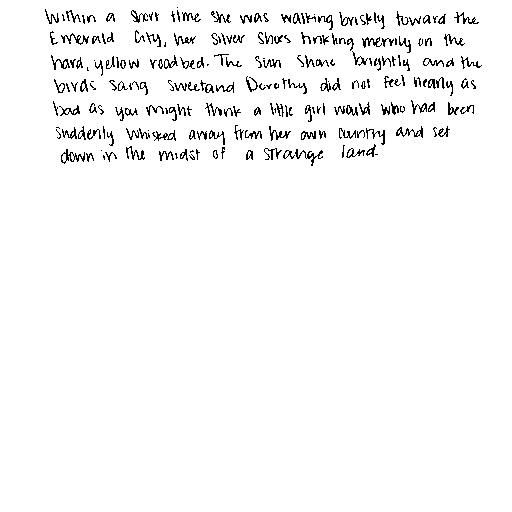 Within a short time she was walking briskly toward the
Emerald City, her Silver Shoes tinkling merrily on the
hard, yellow roadbed. The sun shone brightly and the
birds sang sweetand Dorothy did not feel nearly as
bad as you might think a little girl would who had been
suddenly whisked away from her own country and set
down in the midst of a strange land.